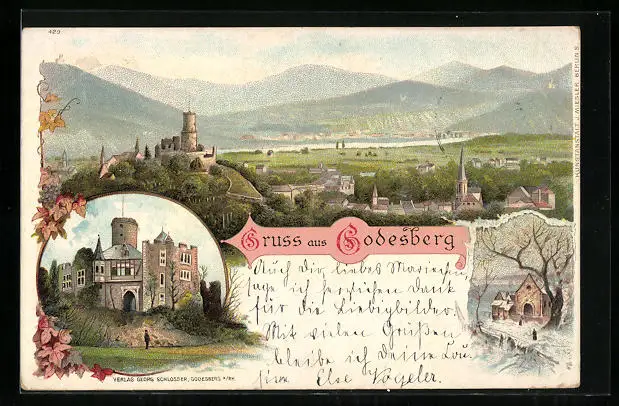 429
KUNSTANSTALT J. MIESLER, BERLIN S.
Gruss aus Godesberg
Auch Dir, liebes Mariechen
sage ich herzlichen Dank
für die Liebigbilder.
Mit vielen Grüßen
bleibe ich Deine Cou-
sine Else Vogeler.
VERLAG GEORG SCHLÖSSER, GODESBERG A/RH.